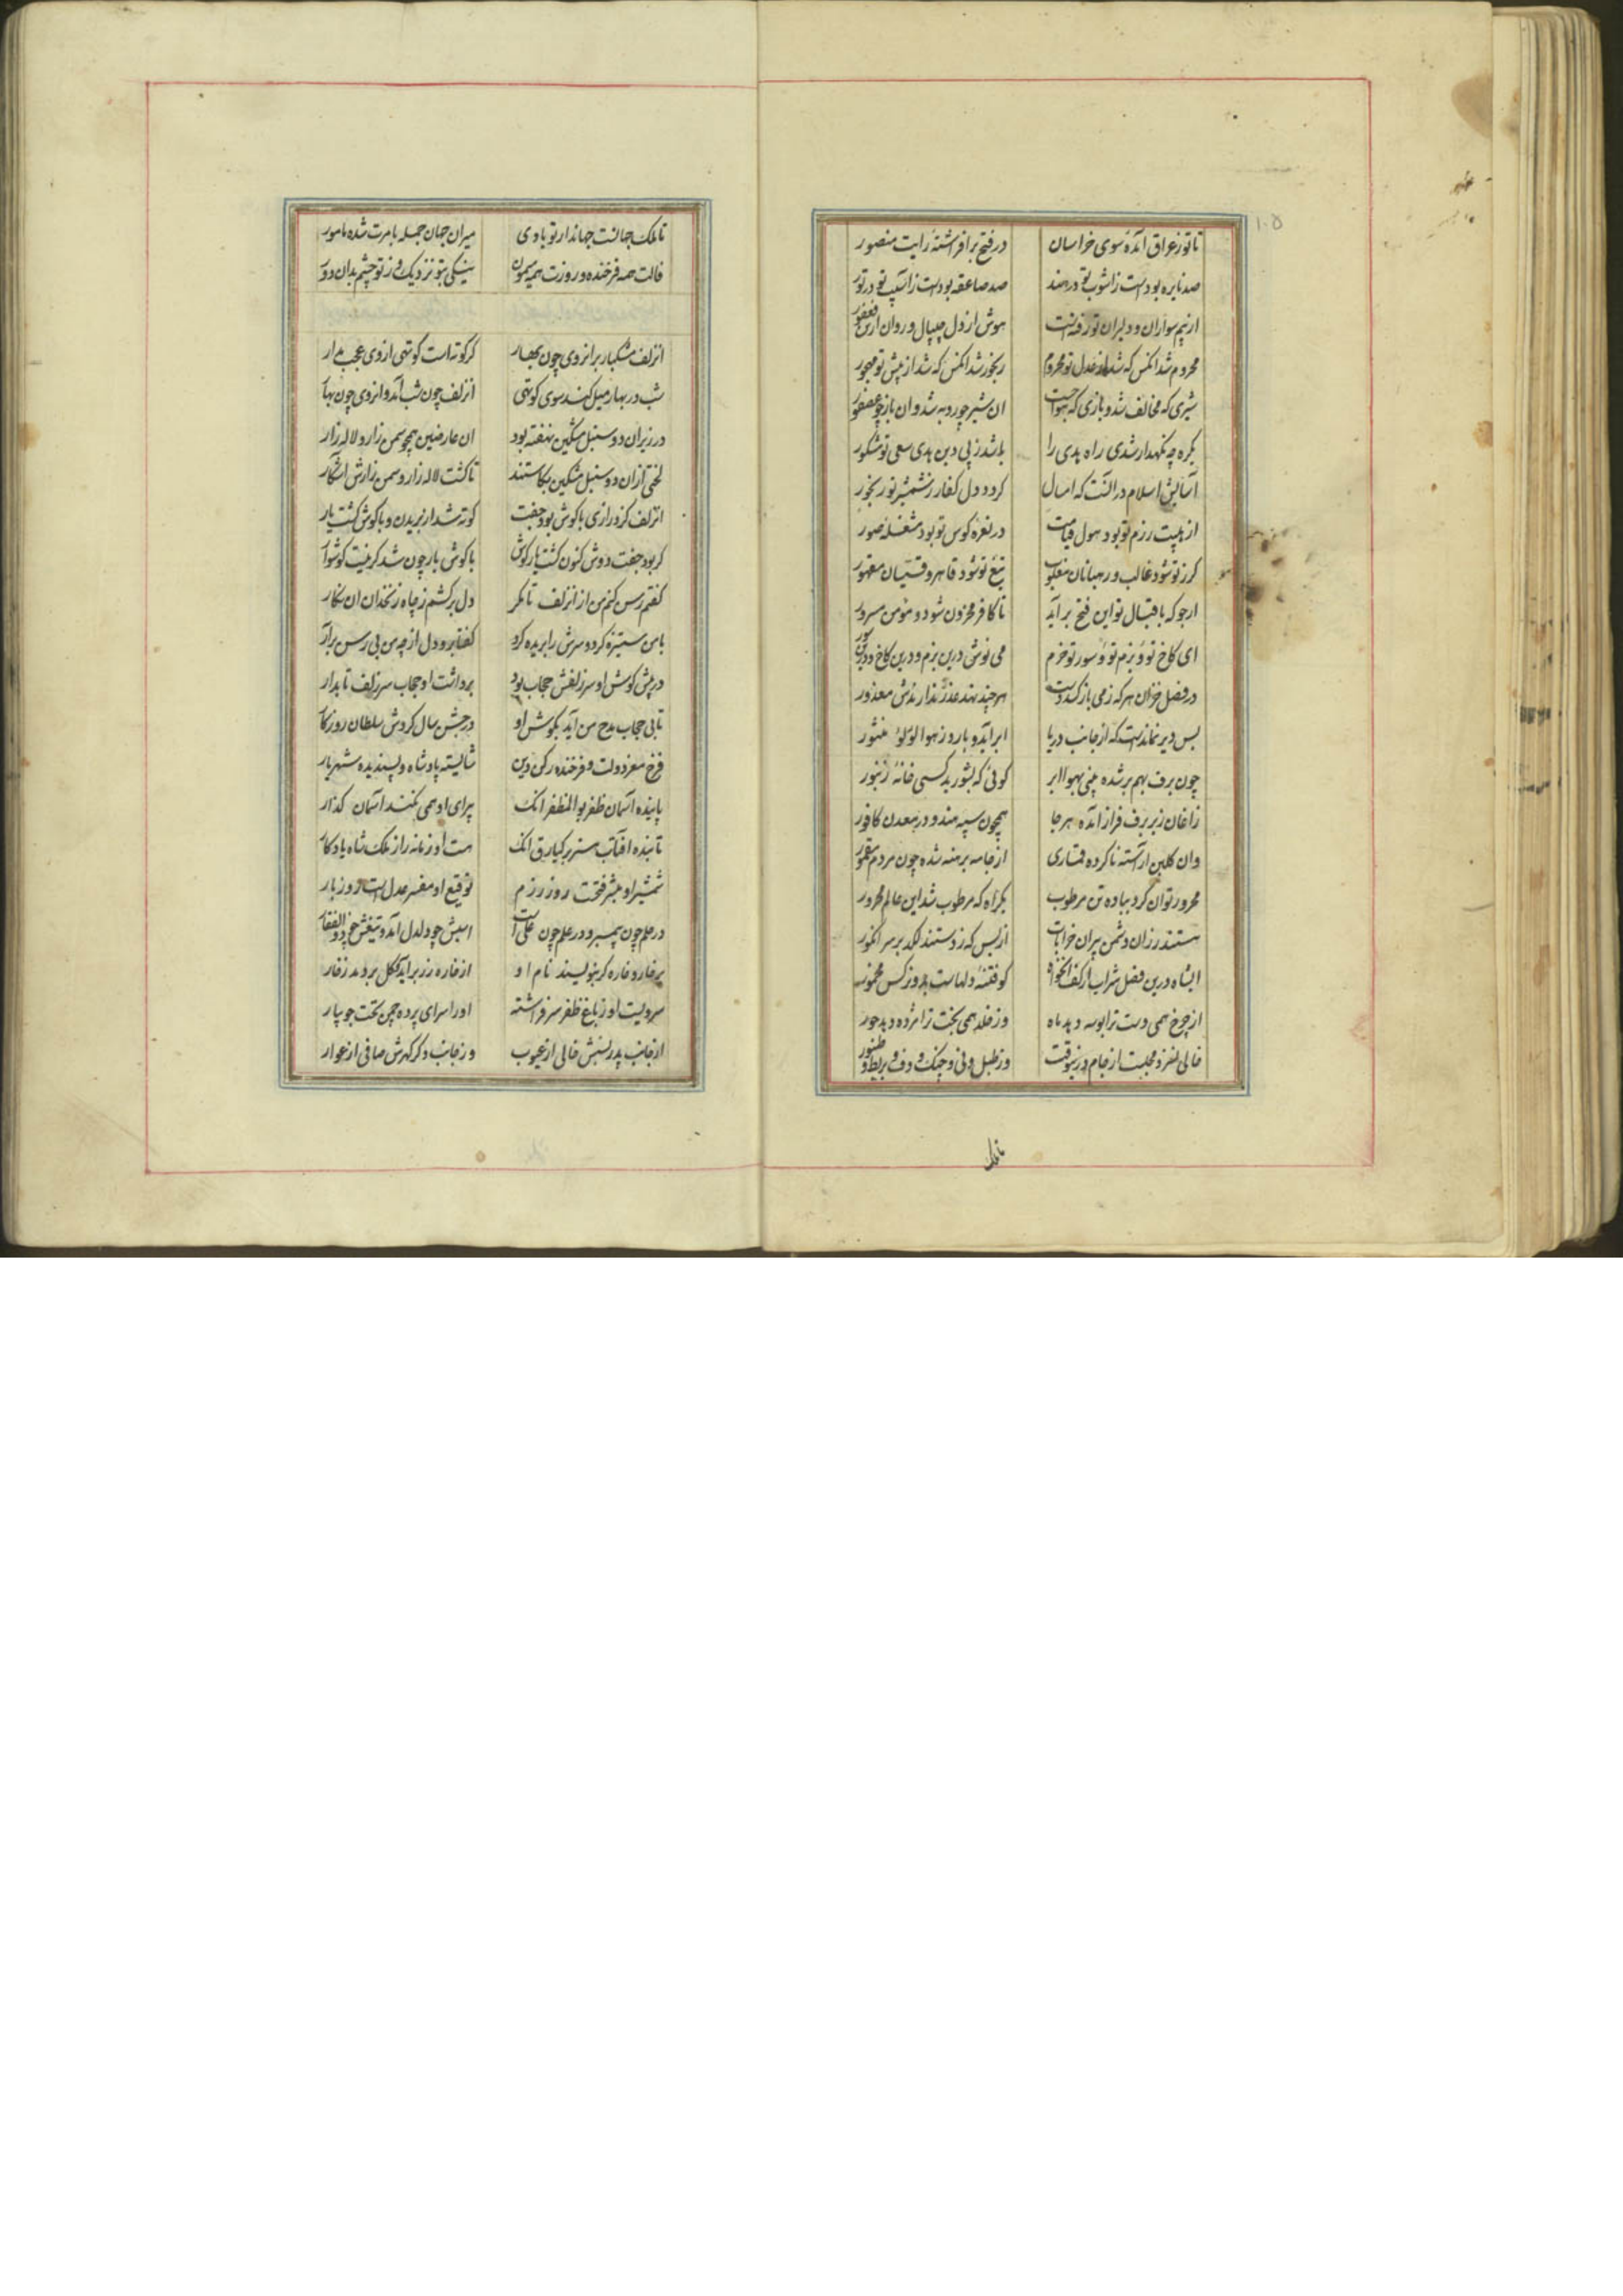 ۱۰۵
تا تو ز عراق آمدهٔ سوی خراسان در فتح برافراشتهٔ رایت منصور
صد نایره بودست ز آشوب تو در هند صد صاعقه بودست ز آسیب تو در تور
از بیم سواران و دلیران تو رفتست هوش از دل چیپال و روان از تن فغفور
محروم شد انکس که شد از عدل تو محروم رنجور شد انکس که شد از پیش تو مهجور
شیری که مخالف شد و بازی که جست ان شیر چو روبه شد وان باز چو عصفور
یکره چو نکهدار شدی راه هدی را باشد ز پی دین هدی سعی تو مشکور
آسایش اسلام در آنست که امسال کردد دل کفار ز شمشیر تو رنجور
از هیبت رزم تو بود هول قیامت در نعره کوس تو بود مشغلهٔ صور
کرز تو شود غالب و رهبانان مغلوب تیغ تو شود قاهر و قسیسان مقهور
ارجو که باقبال تو این فتح براید تا کافر محزون شود و مومن مسرور
ای کاخ تو و بزم تو و سور تو خرم می نوش درین بزم و درین کاخ و درین سور
در فصل خزان هر که ز می باز کشد دست هر چند نهد عذر ندارندش معذور
بس دیر نماندست که از جانب دریا ابر آید و بارد ز هوا لولو منثور
چون برف بهم بر شده بینی بهوا ابر کوئی که بشورید کسی خانهٔ زنبور
زاغان زبر برف فراز آمده هر جا همچون سپه هند و در معدن کافور
وان کلبن آراسته ناکرده قماری از جامه برهنه شده چون مردم مقمور
محرور توان کرد بباده تن مرطوب یکراه که مرطوب شد این عالم محرور
هستند رزان دشمن پیران خرابات از بس که زدستند لکد بر سر انکور
ای شاه درین فصل شراب از کف انخواه کو فتنهٔ دلهاست بدو نرکس مخمور
از چرخ همی دست ترا بوسه دهد ماه وز خلد همی بخت ترا مژده دهد حور
خالی نفز و مجلست از جام در وقت وز طبل و نی و چنک و دف و بربط و طنبور
تا ملک
تا ملک جهانست جهاندار تو بادی میران جهان جمله بامرت شده مامور
فالت همه فرخنده و روزت همه میمون نیکی بتو نزدیک و ز تو چشم بدان دور
ان زلف مشکبار بر ان روی چون بهار کر کوته است کوتهی از وی عجب مدار
شب در بهار میل کند سوی کوتهی ان زلف چون شب آمد و ان روی چون بهار
در زیر ان دو سنبل مشکین نهفته بود ان عارضین همچو سمن زار و لاله زار
لختی از ان دو سنبل مشکین بکاستند تا کشت لاله زار و سمن زارش آشکار
ان زلف کز درازی با کوش بود جفت کوته شد از بریدن و با کوش کشت یار
کر بود جفت دوش کنون کشت یار کوش با کوش یار چون شد کر نیست کوشوار
کفتم رسن کنم من از ان زلف تا مکر دل برکشم ز چاه زنخدان ان نکار
با من ستیزه کرد و سرش را بریده کرد کفتا برو دل از چه من بی رسن برآر
در پیش کوش او سر زلفش حجاب بود برداشت او حجاب سر زلف تابدار
تا بی حجاب مدح من آید بکوش او در جشن سال کردش سلطان روزکار
فرخ معز دولت و فرخنده رکن دین شایسته پادشاه و پسندیده شهریار
پاینده آسمان ظفر بوالمظفر انک بی رای او همی نکند آسمان کذار
تابنده آفتاب هنر برکیارق انک هست او زمانه را ز ملک شاه یادکار
شمشیر او مبشر فتحست روز رزم توقیع او مفسر عدل است روز بار
در حلم چون پیمبر و در علم چون علی است اسبش چو دلدل آمد و تیغش چو ذوالفقار
بر خار و خاره کر بنویسند نام او از خاره زر برآید و کل بردمد ز خار
سرویست او ز باغ ظفر سر فراشته او را سرای پرده چمن تخت جویبار
از جانب پدر نسبش خالی از عیوب وز جانب دکر کهرش صافی از عوار